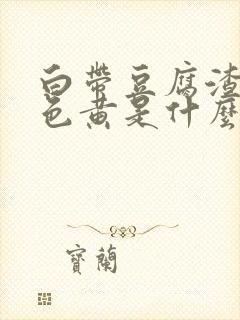 白帶豆腐渣
色黄是什麼
寳蘭